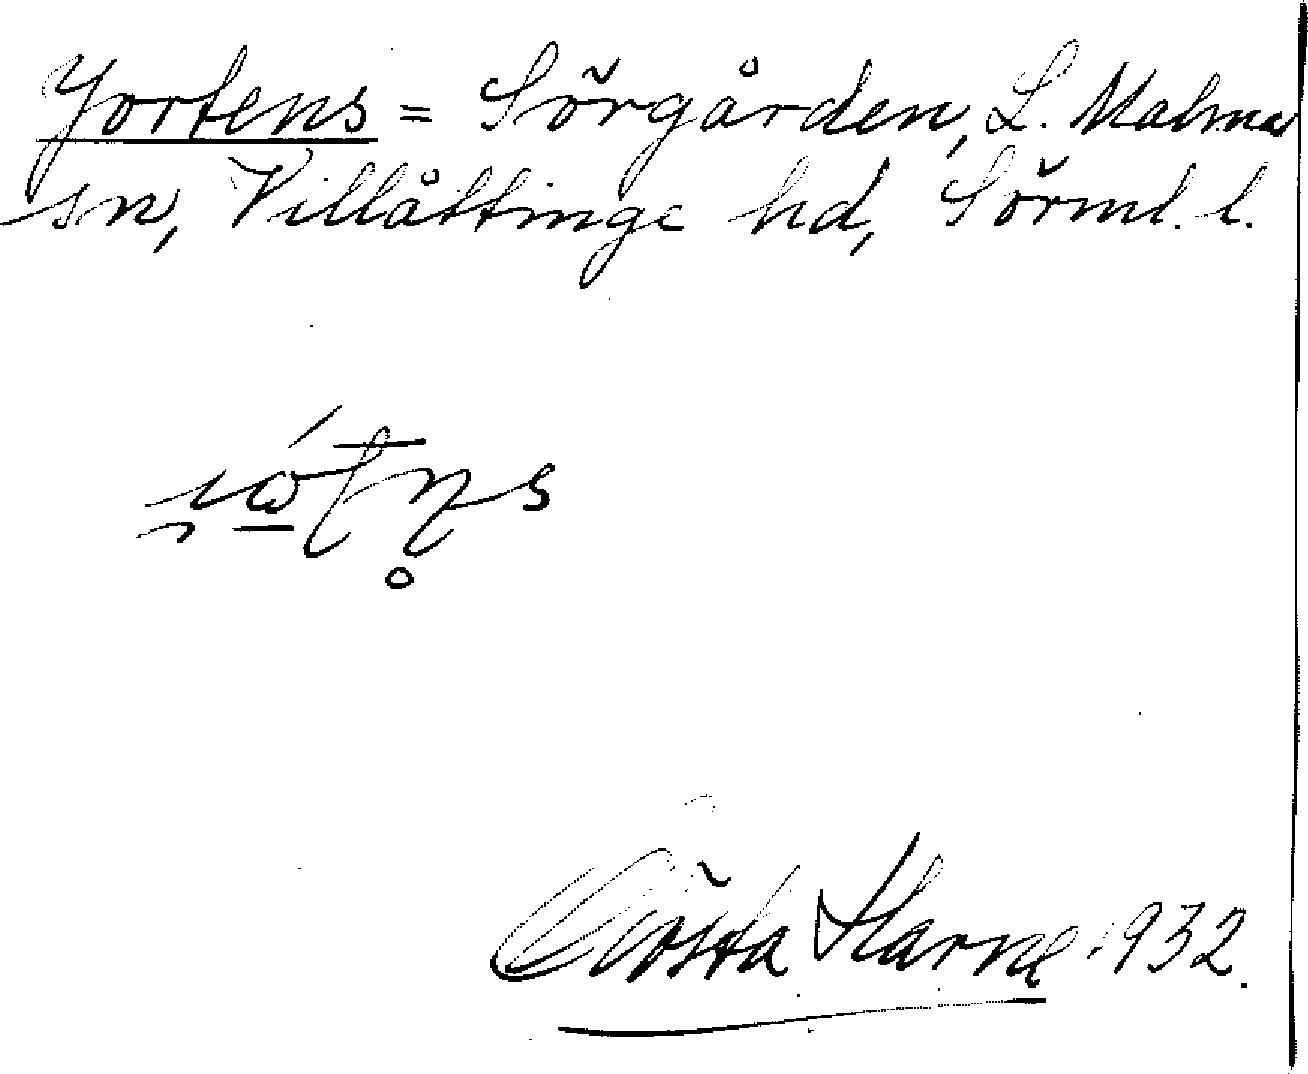 Jortens = Sörgården, L. Malma
sn, Villåttinge hd, Sörml. l.
Gösta Harne 1932.